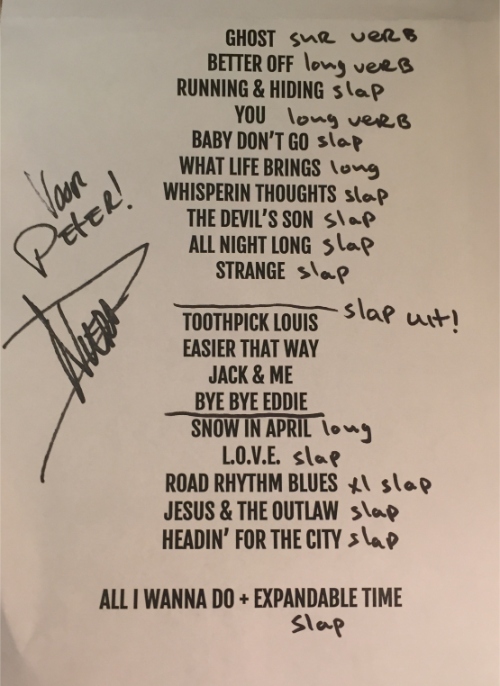 GHOST sur verb
BETTER OFF long verb
RUNNING & HIDING slap
YOU long verb
BABY DON'T GO slap
WHAT LIFE BRINGS long
WHISPERIN THOUGHTS slap
THE DEVIL'S SON slap
ALL NIGHT LONG slap
STRANGE slap
Voor
Peter!
slap uit!
TOOTHPICK LOUIS
EASIER THAT WAY
JACK & ME
BYE BYE EDDIE
SNOW IN APRIL long
L.O.V.E. slap
ROAD RHYTHM BLUES xl slap
JESUS & THE OUTLAW slap
HEADIN' FOR THE CITY slap
ALL I WANNA DO + EXPANDABLE TIME
slap